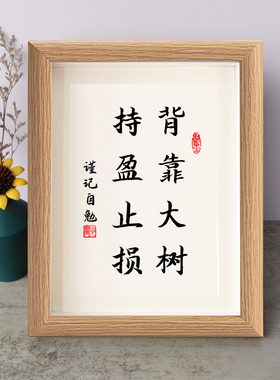 背靠大树
持盈止损
谨记自勉